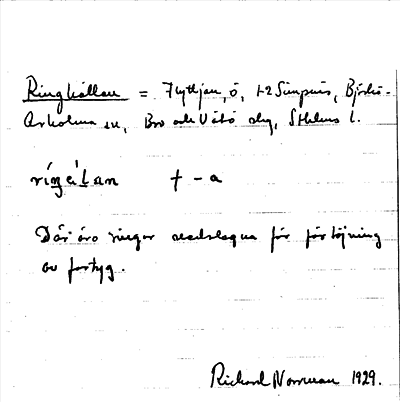 Ringhällan = Flyttjan, ö, 1-2 Simpnäs, Björkö-
Arholma sn, Bro och Vätö skg, Sthlms l.
t - a
Där äro ringar nedslagna för förtöjning
av fartyg.
Richard Norrman 1929.